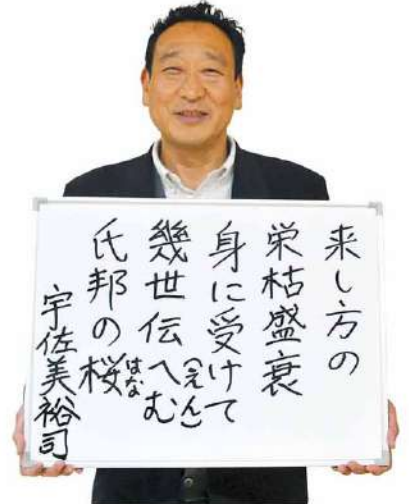 来し方の
栄枯盛衰
身に受けて
幾世伝へむ
(えん)
氏邦の桜
はな
宇佐美裕司